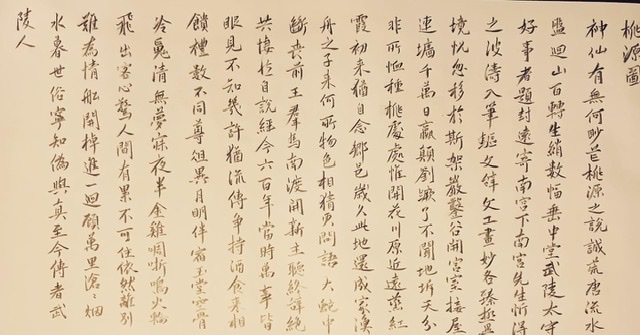 桃源圖
神仙有無何眇芒桃源之說誠荒唐流水
盤迴山百轉生綃數幅垂中堂武陵太守
好事者題封遠寄南宮下南宮先生忻得
之波濤入筆驅文辞文工畫妙各臻極異
境恍惚移於斯架巖鑿谷開宮室接屋
連墻千萬日嬴顛劉蹶了不聞地坼天分
非所恤種桃處處惟開花川原近遠蒸紅
霞初来猶自念鄉邑歲久此地還成家漁
舟之子来何所物色相猜更問語大蛇中
斷喪前王群馬南渡開新主聽終辭絶
共悽然自說經今六百年當時萬事皆
眼見不知幾許猶流傳爭持酒食来相
饋禮數不同尊俎異月明伴宿玉堂空骨
冷魂清無夢寐夜半金雞啁哳鳴火輪
飛出客心驚人間有累不可住依然離別
難為情船開棹進一迴顧萬里滄〻烟
水暮世俗寧知偽與真至今傳者武
陵人